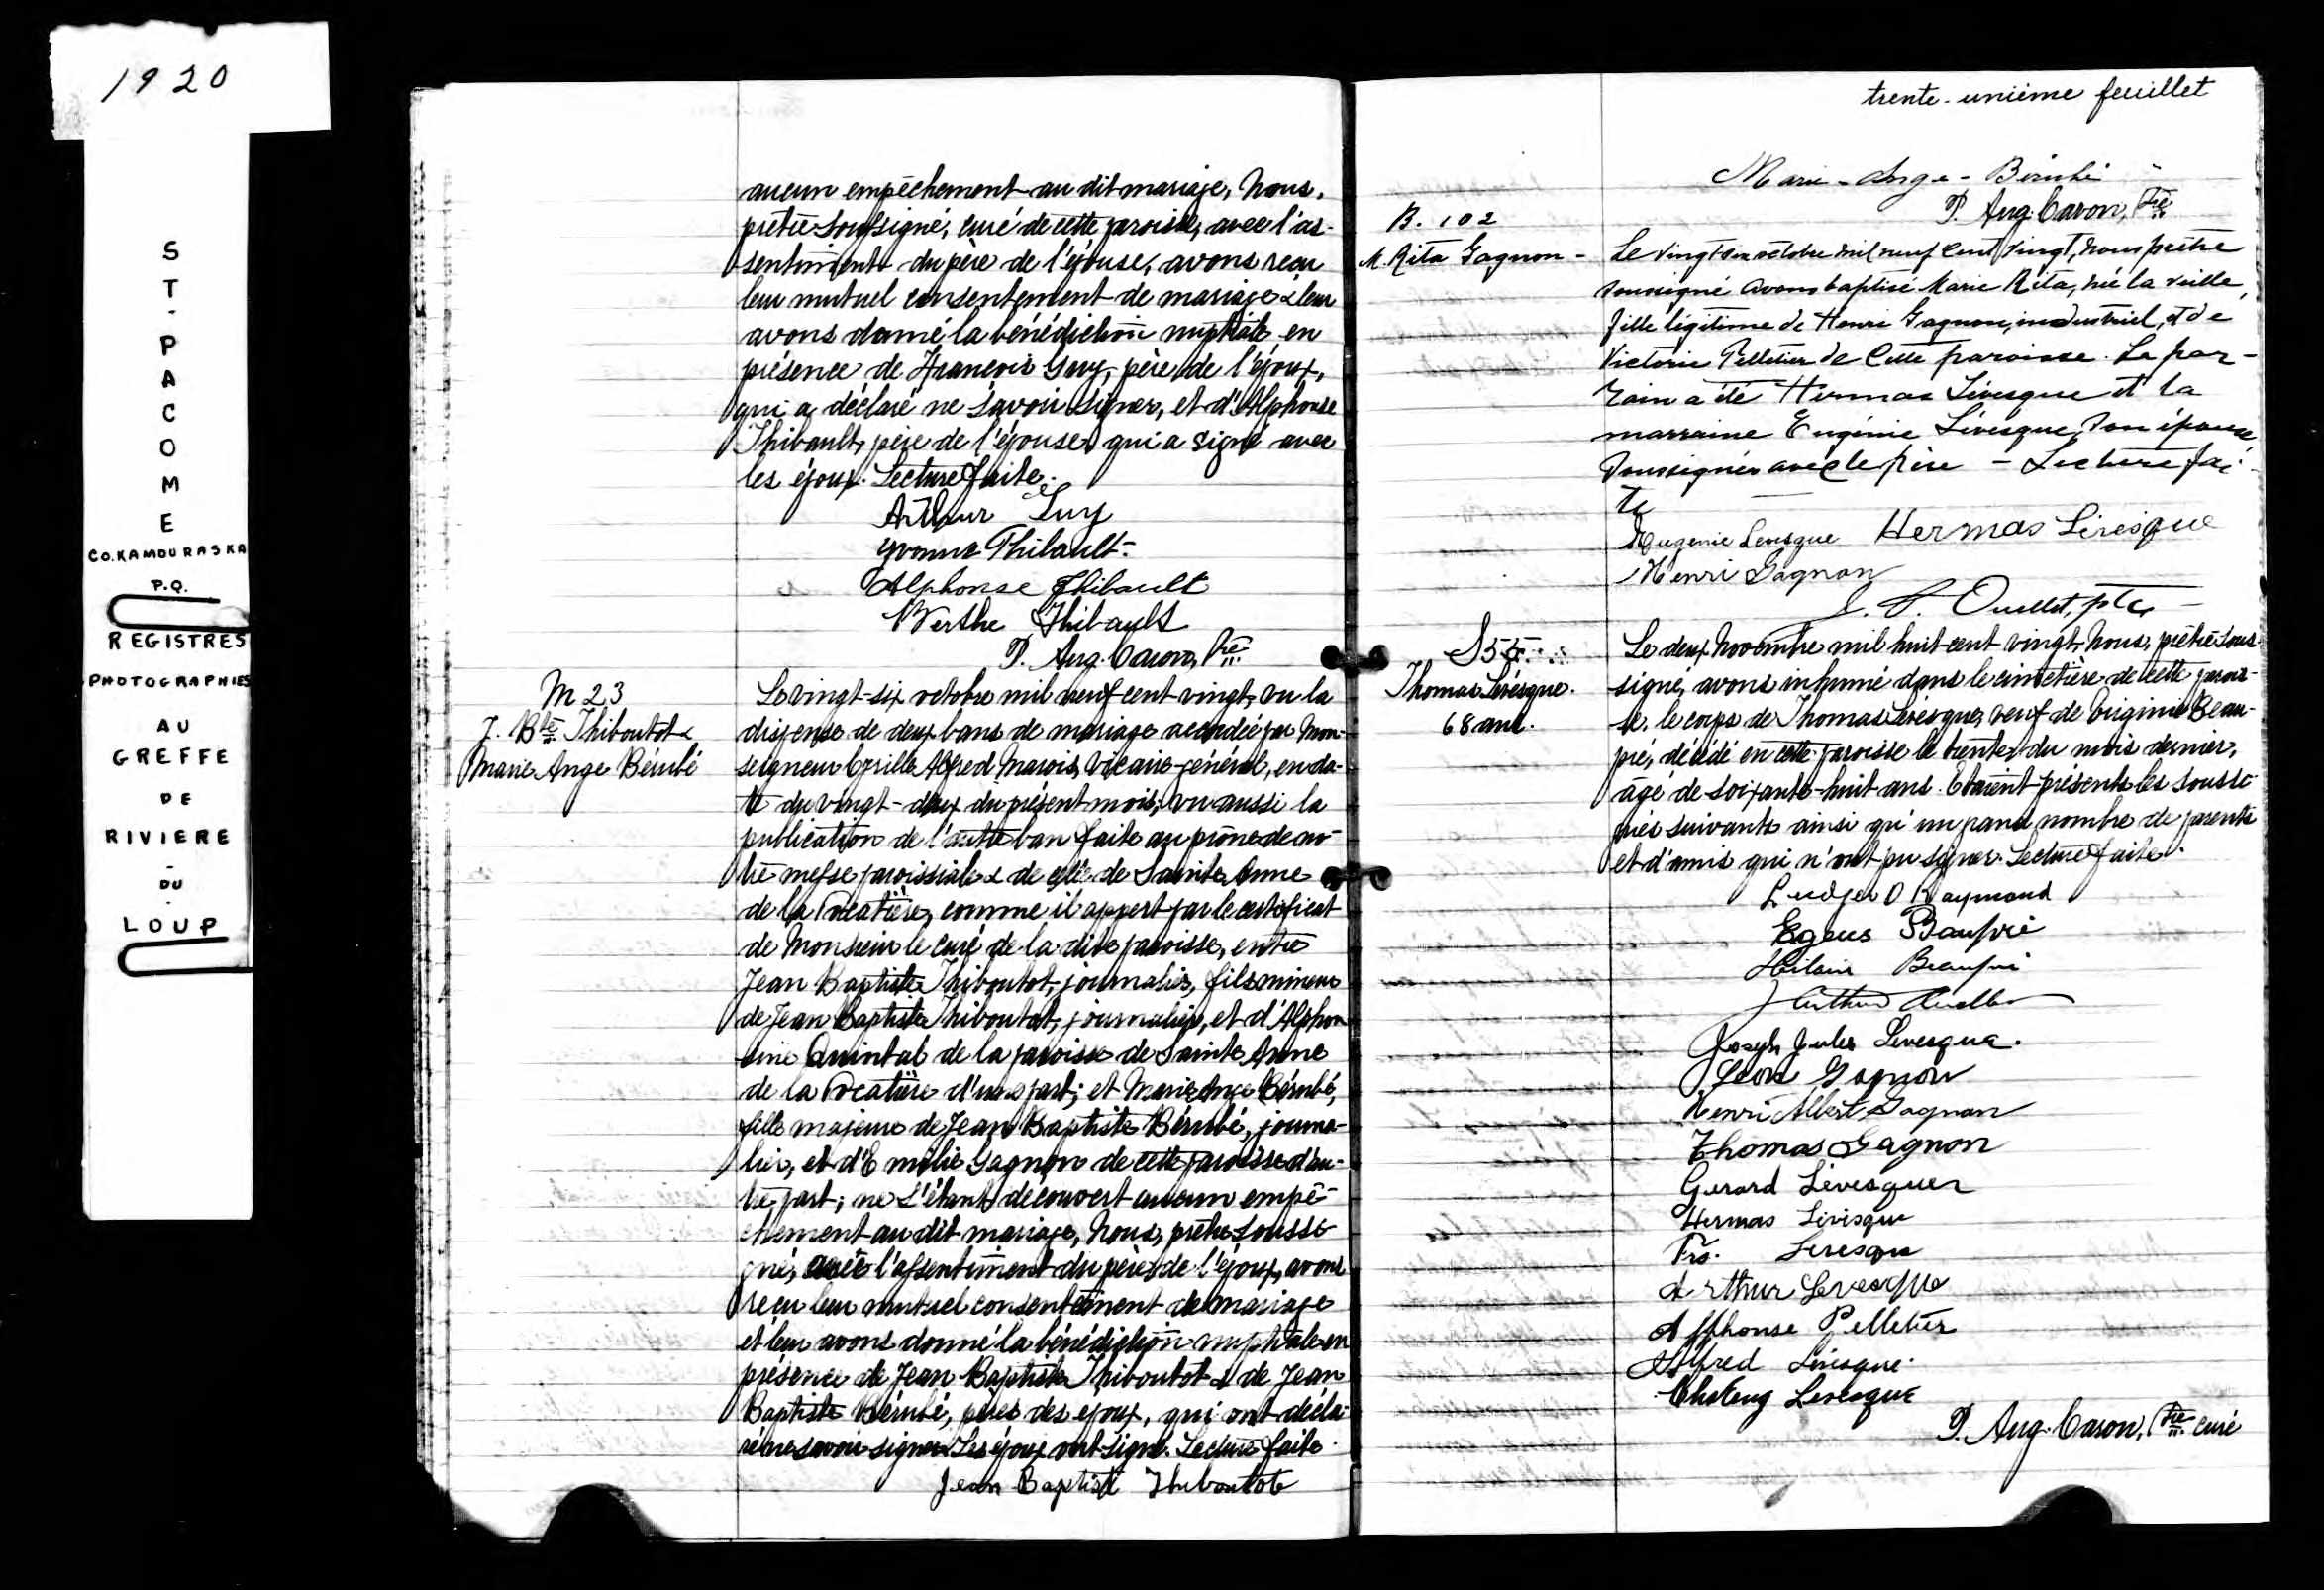 1920
S
T
-
P
A
C
O
M
E
CO. KAMOURASKA
P.Q.
REGISTRES
PHOTOGRAPHIES
AU
GREFFE
DE
RIVIERE
-
DU
-
LOUP
aucun empêchement au dit mariage, Nous,
prêtre soussigné, curé de cette paroisse, avec l'as-
sentiment du père de l'épouse, avons reçu
leur mutuel consentement de mariage & leur
avons donné la bénédiction nuptiale en
présence de François Guy, père de l'époux,
qui a déclaré ne savoir signer, et d'Alphonse
Thibault, père de l'épouse qui a signé avec
les époux. Lecture faite.
Arthur Guy
Yvonne Thibault
Alphonse Thibault
Berthe Thibault
P. Aug. Caron, Ptre
M 23
J. Bte Thiboutot &
Marie Ange Bérubé
Le vingt-six octobre mil neuf cent vingt, vu la
dispense de deux bans de mariage accordée par Mon-
seigneur Cyrille Alfred Marois, Vicaire-général, en da-
te du vingt-deux du présent mois; vu aussi la
publication de l'autre ban faite au prône de no-
tre messe paroissiale & de celle de Sainte Anne
de la Pocatière, comme il appert par le certificat
de Monsieur le curé de la dite paroisse, entre
Jean Baptiste Thiboutot, journalier, fils mineur
de Jean Baptiste Thiboutot, journalier, et d'Alphon
sine Quintal de la paroisse de Sainte Anne
de la Pocatière d'une part; et Marie Ange Bérubé,
fille majeure de Jean Baptiste Bérubé, journa-
lier, et d'Emélie Gagnon de cette paroisse d'au-
tre part; ne s'étant découvert aucun empê-
chement au dit mariage, Nous, prêtre soussi-
gné, avec l'assentiment du père de l'époux, avons
reçu leur mutuel consentement de mariage
et leur avons donné la bénédiction nuptiale en
présence de Jean Baptiste Thiboutot & de Jean
Baptiste Bérubé, pères des époux, qui ont décla-
ré ne savoir signer. Les époux ont signé. Lecture faite.
Jean Baptist Thiboutot
trente-unième feuillet
Marie-Ange-Bérubé
P. Aug. Caron, Ptre
B. 102
M. Rita Gagnon -
Le vingt six octobre mil neuf cent vingt, nous prêtre
soussigné avons baptisé Marie Rita, née la veille,
fille légitime de Henri Gagnon, industriel, et de
Victorie Pelletier de cette paroisse. Le par-
rain a été Hermas Lévesque et la
marraine Eugénie Lévesque, son épouse
soussignés avec le père - Lecture fai-
te
Eugenie Levesque Hermas Lévesque
Henri Gagnon
Ouellet, ptre
S 55
Thomas Lévesque.
68 ans.
Le deux novembre mil huit cent vingt, Nous, prêtre sous-
signé, avons inhumé dans le cimetière de cette parois-
se, le corps de Thomas Lévesque, veuf de Virginie Beau-
pré, décédé en cette paroisse le trente du mois dernier,
âgé de soixante-huit ans. Etaient présents les soussi-
gnés suivants ainsi qu'un grand nombre de parents
et d'amis qui n'ont pu signer. Lecture faite.
Ludger O Raymond
Beaupré
Hilaire Beaupré
J Arthur
Joseph Jules Levesque.
Léon Gagnon
Henri Albert Gagnon
Thomas Gagnon
Gerard Lévesque
Hermas Lévesque
Frs. Levesque
Arthur Levesque
Alphonse Pelletier
Alfred Lévesque
Levesque
P. Aug. Caron, Ptre curé